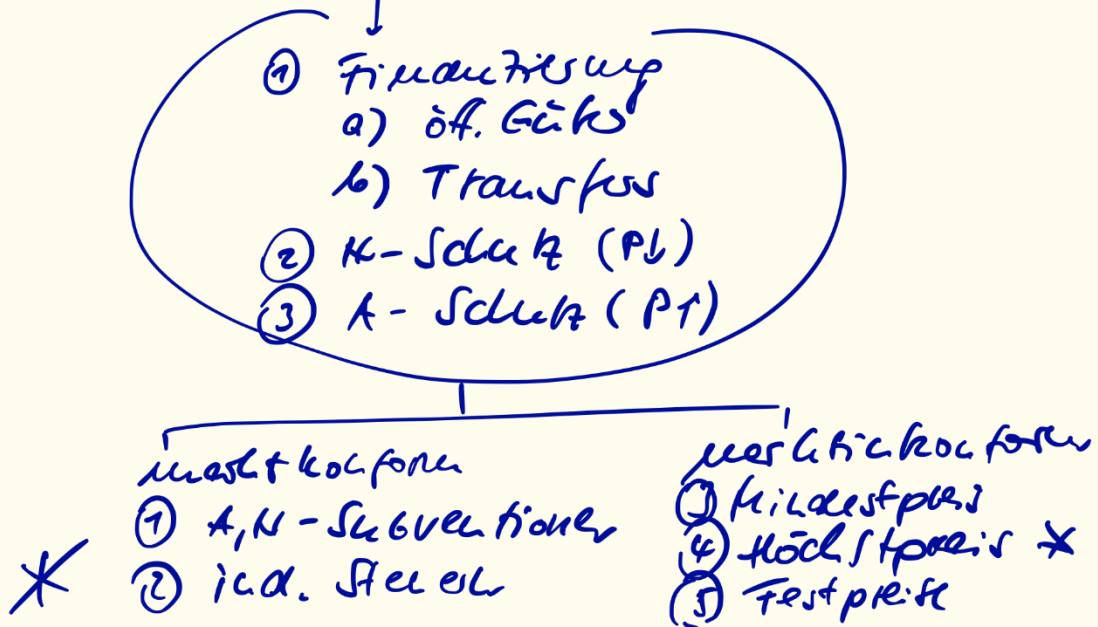 ① Finanzierung
a) öff. Güter
b) Transfers
② N-Schutz (P↓)
③ A-Schutz (P↑)
marktkonform
① A,N-Subventionen
* ② ind. Steuern
marktinkonform
③ Mindestpreis
④ Höchstpreis *
⑤ Festpreise